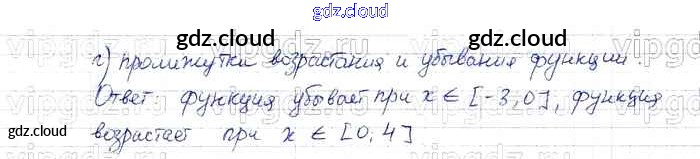 gdz.cloud
gdz.cloud gdz.cloud
г) промижутки возрастания и убывания функции.
Ответ: функция убывает при x ∈ [-3,0], функция
gdz.cloud
возрастает при x ∈ [0,4]